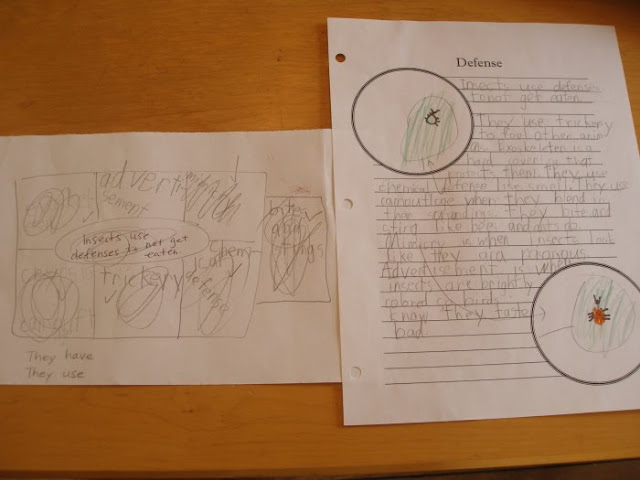 advert
isement
Insects use
defenses to not get
eaten
trickery
chemi
cal
defense
bites
and
stings
They have
They use
Defense
Insects use defenses
to not get eaten.
They use trickery
to fool other
Exoskeleton is a
hard covering that
protects them. They use
chemical defense like smell. They use
camouflage when they blend in
their They bite and
sting like bees and ants do.
Mimicry is when insects look
like they are
Advertisement is when
insects are brightly
colored so birds
know they taste
bad.